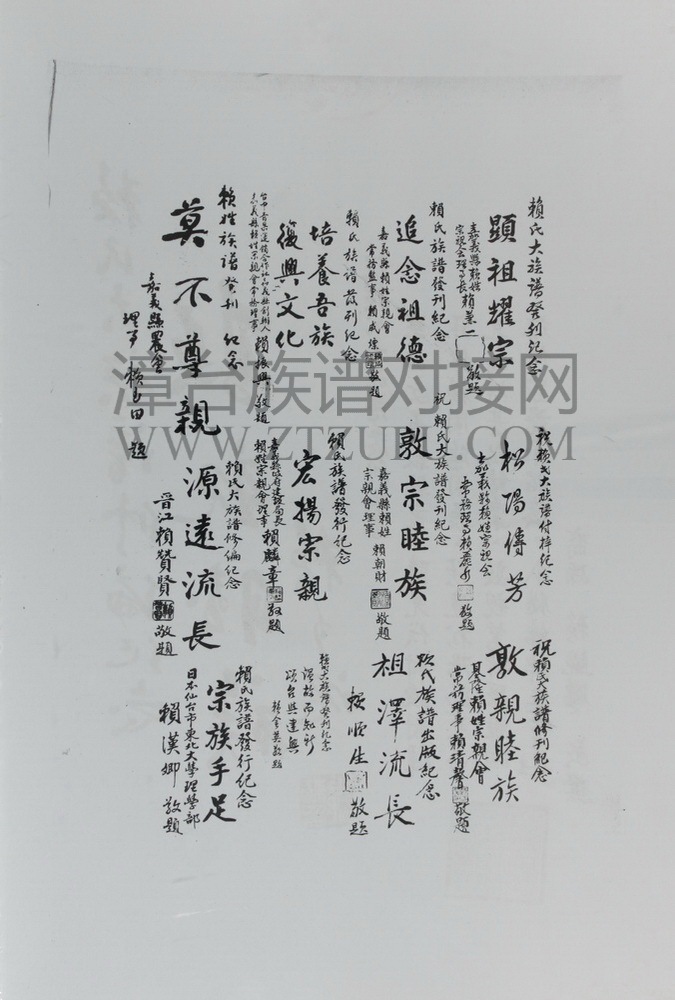 賴氏大族譜發刊紀念
顯祖耀宗
嘉義縣賴姓
宗親會理事長 賴 二 敬題
賴氏族譜發刊紀念
追念祖德
嘉義縣賴姓宗親會
常務監事 賴威 敬題
賴氏族譜發刊紀念
培養吾族
復興文化
嘉義縣賴姓宗親會常務理事 賴振興 敬題
賴姓族譜發刊紀念
莫不尊親
嘉義縣農會
理事 賴 田 題
祝賴氏大族譜付梓紀念
松陽傳芳
嘉義縣賴姓宗親會
常務理事賴 敬題
祝賴氏大族譜發刊紀念
敦宗睦族
嘉義縣賴姓
宗親會理事 賴朝財 敬題
賴氏族譜發行紀念
宏揚宗親
嘉義縣政府建設局長
賴姓宗親會理事 賴麟章 敬題
賴氏大族譜修編紀念
源遠流長
晋江賴贊賢 敬題
祝賴氏大族譜修刊紀念
敦親睦族
基隆賴姓宗親會
常務理事賴清 敬題
賴氏族譜出版紀念
祖澤流長
賴順生 敬題
賴氏大族譜發刊紀念
溫故而知新
賴金英敬題
賴氏族譜發行紀念
宗族手足
日本仙台市東北大學理學部
賴漢卿 敬題
漳台族谱对接网
WWW.ZTZUPU.COM